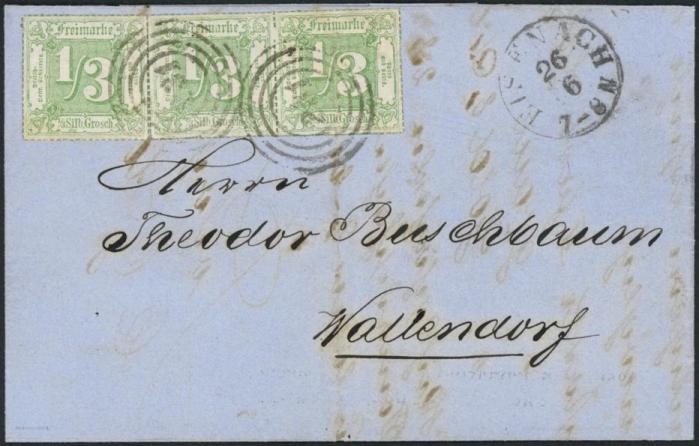 Freimarke Freimarke Freimarke
1/3 1/3 1/3
Silb. Grosch. Silb. Grosch. Silb. Grosch.
EISENACH
26
6
N 8
Herrn
Theodor Buschbaum
Wallendorf